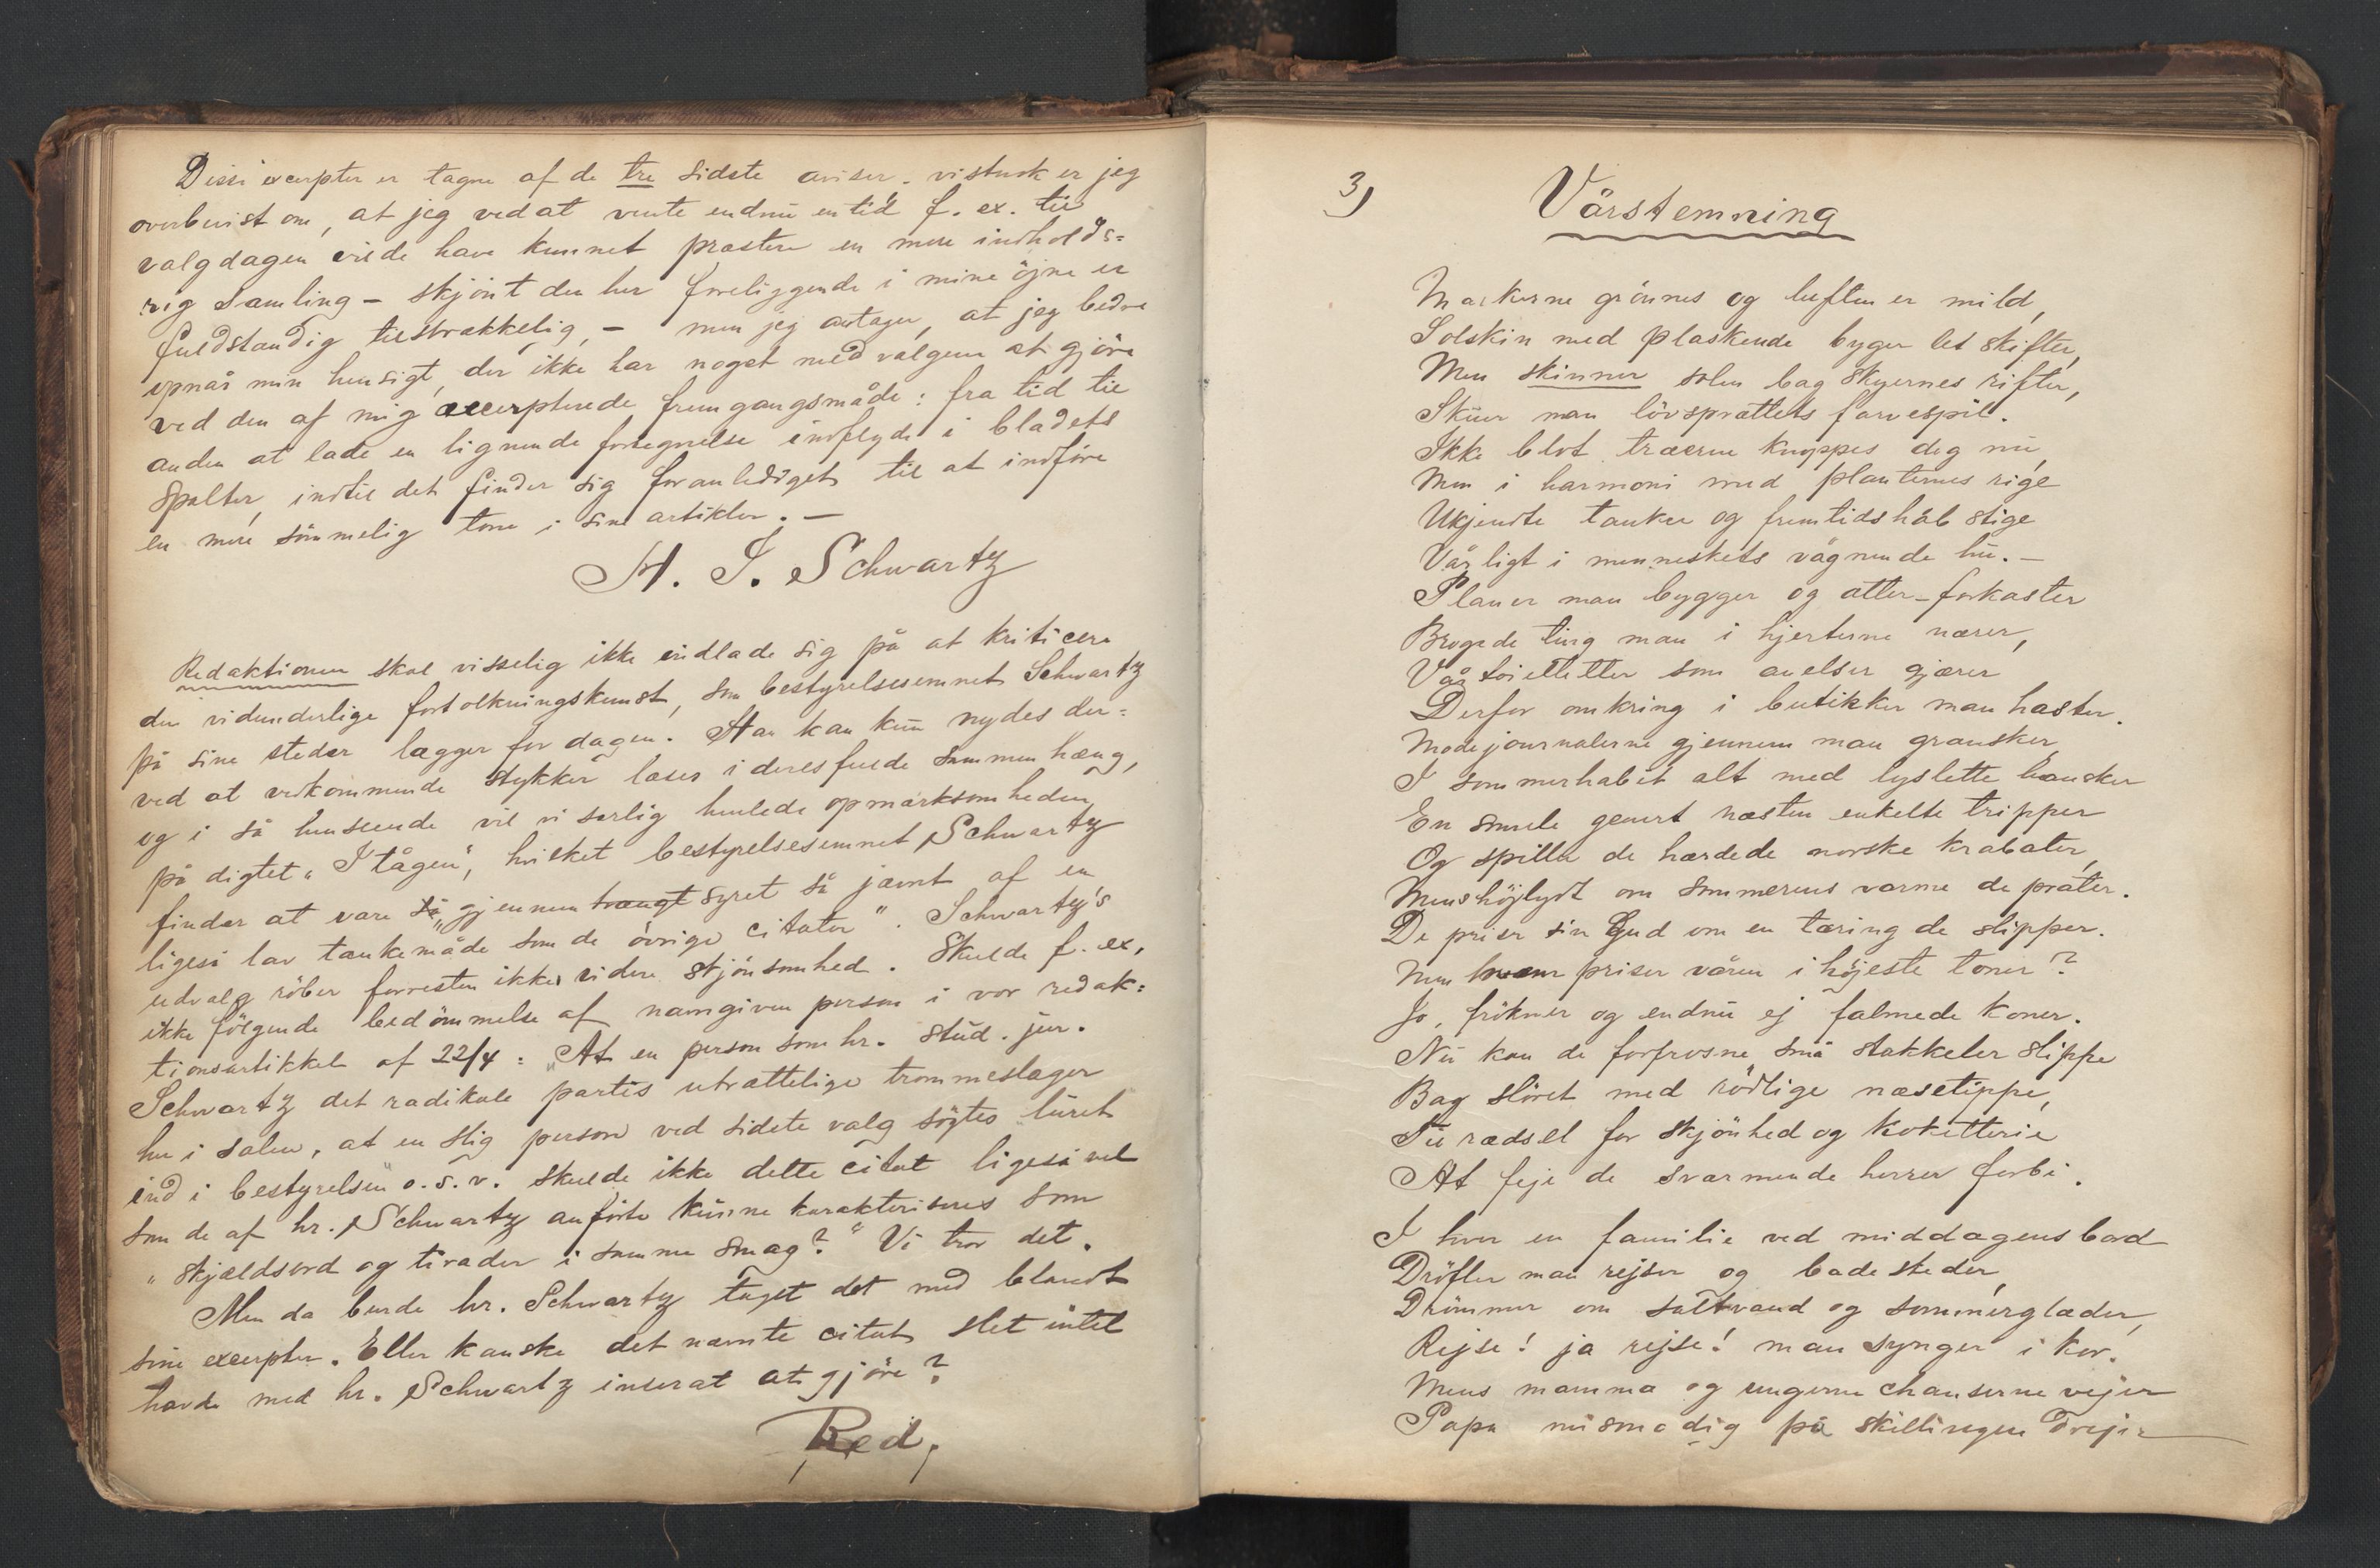 Disse excerpter er tagne af de tre sidste aviser. vistnok er jeg
overbevist om, at jeg ved at vente endnu en tid f. ex. til
valgdagen vilde have kunnet præstere en mere indholds=
rig samling – skjönt den her foreliggende i mine öjne er
fuldstændig tilstrækkelig, – men jeg antager, at jeg bedre
opnår min hensigt, der ikke har noget med valgene at gjöre
ved den af mig excerpterede fremgangsmåde: fra tid til
anden at lade en lignende fortegnelse indflyde i bladets
spalter, indtil det finder sig foranlediget til at indföre
en mere sömmelig tone i sine artikler. –
H. J. Schwartz
Redaktionen skal visselig ikke indlade sig på at kriticere
den vidunderlige fortolkningskunst, som bestyrelsesemnet Schwartz
på sine steder lægger for dagen. Han kan kun nydes der=
ved at vedkommende stykker læses i deres fulde sammenhæng,
og i så henseende vil vi særlig henlede opmærksomheden
på digtet „I tågen", hvilket bestyrelsesemnet Schwartz
finder at være så „gjennem trængt syret så jævnt af en
ligeså lav tænkemåde som de övrige citater". Schwartz's
udvalg röber forresten ikke videre skjönsomhed. Skulde f. ex.
ikke fölgende bedömmelse af navngiven person i vor redak=
tionsartikkel af 22/4: „At en person som hr. stud. jur.
Schwartz det radikale partis utrættelige trommeslager
her i salen, at en slig person ved sidste valg sögtes luret
ind i bestyrelsen" o.s.v. skulde ikke dette citat ligeså vel
som de af hr. Schwartz anförte kunne karakteriseres som
„skjældsord og tirader i samme smag?" Vi tror det.
Men da burde hr. Schwartz taget det med blandt
sine excerpter. Eller kanske det nævnte citat slet intet
havde med hr. Schwartz inserat at gjöre?
Red.
3)
Vårstemning
Markerne grönnes og luften er mild,
Solskin med plaskende byger let skifter,
Men skinner solen bag skyernes rifter,
Skuer man lövsprættets farvespil.
Ikke blot træerne knoppes dog nu,
Men i harmoni med planternes rige
Ukjendte tanker og fremtidshåb stige
Vårligt i menneskets vågnende hu. –
Planer man bygger og atter forkaster
Brogede ting man i hjerterne nærer,
Vårtoiletter som anelser gjærer
Derfor omkring i butikker man haster.
Modejournalerne gjennem man gransker,
I sommerhabit alt med lyslette hansker
En smule genert næsten enkelte tripper
Og spiller de hærdede norske krabater,
Mens höjlydt om sommerens varme de prater.
De priser sin Gud om en tæring de slipper.
Men hvem priser våren i höjeste toner?
Jo, frökner og endnu ej falmede koner.
Nu kan de forfrosne små stakkeler slippe
Bag slöret med rödlige næsetippe,
Til rædsel for skjönhed og koketteri
At feje de sværmende herrer forbi.
I hver en familie ved middagens bord
Dröfter man rejser og badesteder,
Drömmer om saltvand og sommerglæder,
Rejse! ja rejse! man synger i kor.
Mens mamma og ungerne chanserne vejer
Papa mismodig på skillingen drejer